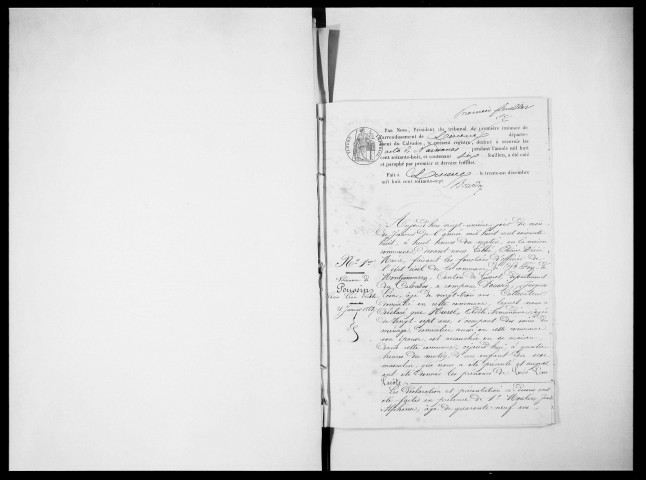 Premier feuillet
Par Nous, Président du tribunal de première instance de
l'arrondissement de Lisieux, départe-
ment du Calvados, le présent registre, destiné à recevoir les
actes de Naissances pendant l'année mil huit
cent soixante-huit, et contenant sept feuillets, a été coté
et paraphé par premier et dernier feuillet.
Fait à Lisieux, le trente-un décembre
mil huit cent soixante-sept.
N° 1er
Naissance de
21 Janvier 1868
Aujourd'hui vingt-unième jour du mois
de Janvier de l'année mil huit cent soixante
huit, à huit heures du matin, en la maison
commune, devant nous
Maire, faisant les fonctions d'officier de
l'état civil de la commune de Ste Foy de
Montgommery, Canton de Livarot, département
du Calvados, a comparu
âgé de vingt-trois ans, Cultivateur
domicilié en cette commune, lequel nous a
déclaré que
de vingt-sept ans, s'occupant des soins du
ménage, domiciliée aussi en cette commune
son épouse, est accouchée en sa maison
dans cette commune, aujourd'hui à quatre
heures du matin, d'un enfant du sexe
masculin, qui nous a été présenté et auquel
ont été donnés les prénoms de Louis Léon
Les déclaration et présentation ci-dessus ont
été faites en présence de 1°
Alphonse, âgé de quarante-neuf ans